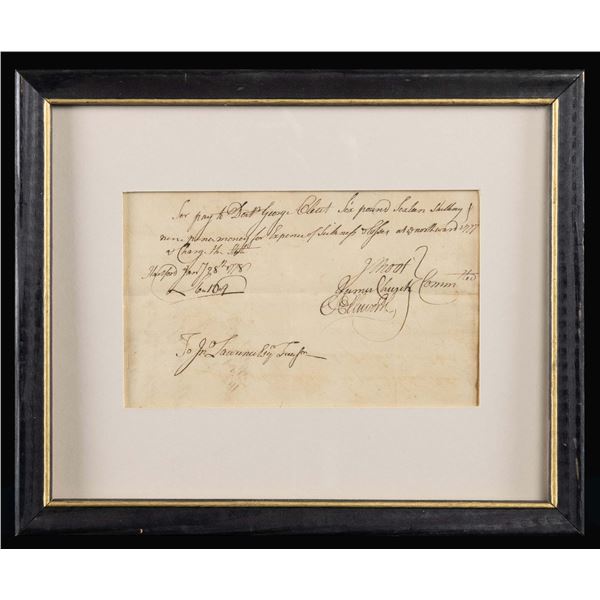 Sir pay to Doct George Cleet Six pound Sixteen Shilling
nine pence money for Expence of Sickness & Losses at Northward 1777
& Charge the State
Hartford Jany 28th 1778
6..16..9
J Root
James Church
O Elsworth
Comm tee
To Jno Lawrence Esqr Treasr